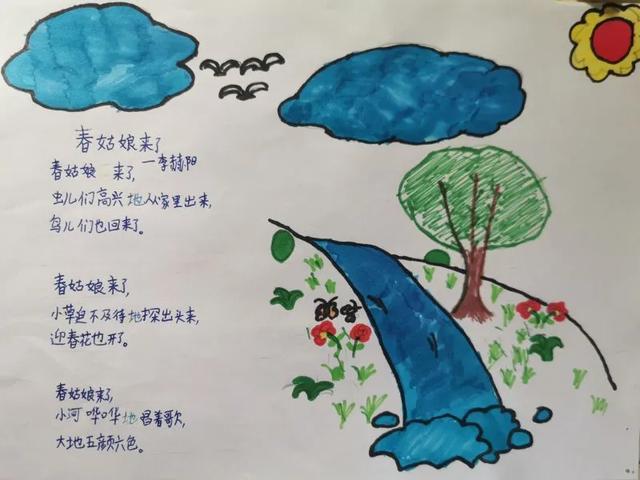 春姑娘来了
—李赫阳
春姑娘 来了,
虫儿们高兴地从家里出来,
鸟儿们也回来了。
春姑娘来了,
小草迫不及待地探出头来,
迎春花也开了。
春姑娘来了,
小河哗哗地唱着歌,
大地五颜六色。